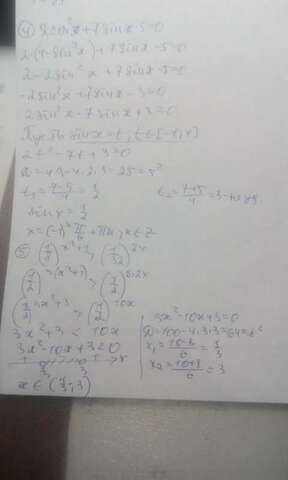 ④ 2cos²x+7sinx-5=0
2(1-sin²x)+7sinx-5=0
2-2sin²x+7sinx-5=0
-2sin²x+7sinx-3=0
2sin²x-7sinx+3=0
Пусть sinx=t, t∈[-1;1]
2t²-7t+3=0
D=49-4·2·3=25=5²
t₁=(7-5)/4=1/2 t₂=(7+5)/4=3
sinx=1/2
x=(-1)ⁿ π/6+πn, n∈Z
⑤ (1/8)^(x²+1) > (1/32)^(2x)
(1/2)^(3(x²+1)) > (1/2)^(5·2x)
(1/2)^(3x²+3) > (1/2)^(10x)
3x²+3 < 10x
3x²-10x+3<0
1/3 3 x
x∈(1/3;3)
3x²-10x+3=0
D=100-4·3·3=64=8²
x₁=(10-8)/6=1/3
x₂=(10+8)/6=3